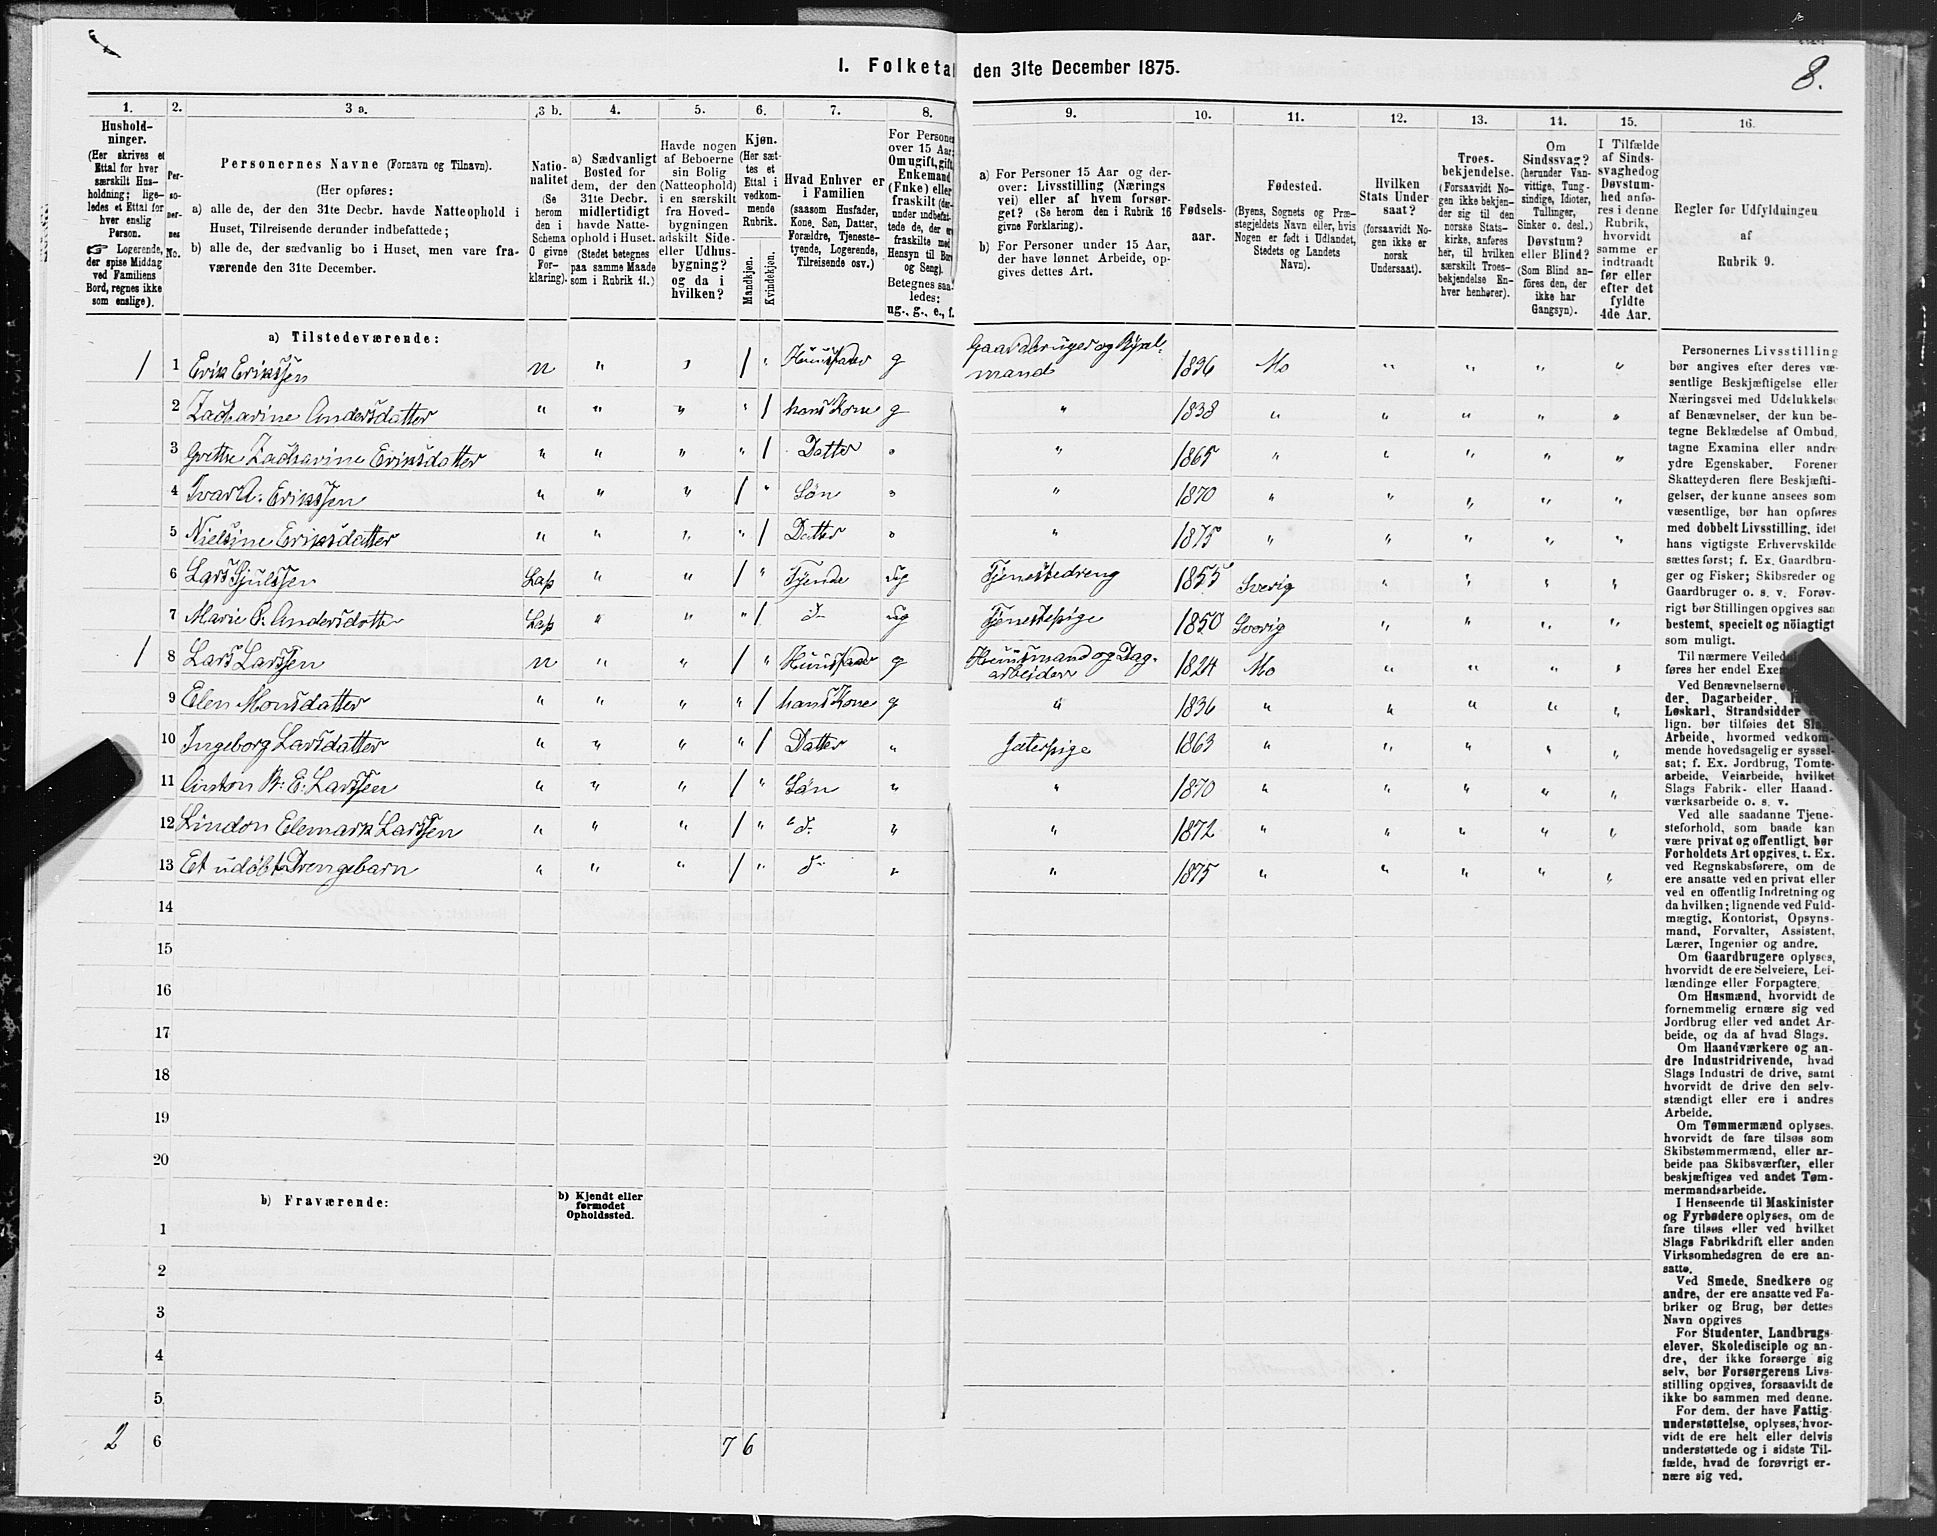 8.
1. Folketa den 31te December 1875.
1. 2. 3 a. 3 b. 4. 5. 6. 7. 8. 9. 10. 11. 12. 13. 14. 15. 16.
Hushold-
ninger.
(Her skrives et
Ettal for hver
særskilt Hus-
holdning; lige-
ledes et Ettal for
hver enslig
Person.
☞ Logerende,
der spise Middag
ved Familiens
Bord, regnes ikke
som enslige).
Per-
so-
ner-
nes
No.
Personernes Navne (Fornavn og Tilnavn).
(Her opføres:
a) alle de, der den 31te Decbr. havde Natteophold i
Huset, Tilreisende derunder indbefattede;
b) alle de, der sædvanlig bo i Huset, men vare fra-
værende den 31te December.
Natio-
nalitet
(Se
herom
den i
Schema
O givne
For-
klaring).
a) Sædvanligt
Bosted for
dem, der den
31te Decbr.
midlertidigt
havde Natte-
ophold i Huset.
(Stedet betegnes
paa samme Maade
som i Rubrik 11.)
Havde nogen
af Beboerne
sin Bolig
(Natteophold)
i en særskilt
fra Hoved-
bygningen
adskilt Side-
eller Udhus-
bygning?
og da i
hvilken?
Kjøn.
(Her sæt-
tes et
Ettal i
vedkom-
mende
Rubrik.
Mandkjøn.
Kvindekjøn.
Hvad Enhver er
i Familien
(saasom Husfader,
Kone, Søn, Datter,
Forældre, Tjeneste-
tyende, Logerende,
Tilreisende osv.)
For Persone
over 15 Aar:
Om ugift, gift,
Enkemand
(Enke) eller
fraskilt (der-
under indbefat-
tede de, der er
fraskilte med
Hensyn til Bor
og Seng).
Betegnes saa-
ledes:
ug., g., e., f.
a) For Personer 15 Aar og der-
over: Livsstilling (Nærings
vei) eller af hvem forsør-
get? (Se herom den i Rubrik 16
givne Forklaring).
b) For Personer under 15 Aar,
der have lønnet Arbeide, op-
gives dettes Art.
Fødsels-
aar.
Fødested.
(Byens, Sognets og Præ-
stegjeldets Navn eller, hvis
Nogen er født i Udlandet,
Stedets og Landets
Navn).
Hvilken
Stats Under
saat?
(forsaavidt No-
gen ikke er
norsk
Undersaat).
Troes-
bekjendelse.
(Forsaavidt No-
gen ikke bekjen-
der sig til den
norske Stats-
kirke, anføres
her, til hvilken
særskilt Troes-
bekjendelse En-
hver henhører).
Om
Sindssvag?
(herunder Van-
vittige, Tung-
sindige, Idioter,
Tullinger,
Sinker o. desl.)
Døvstum?
eller Blind?
(Som Blind an-
føres den, der
ikke har
Gangsyn).
I Tilfælde
af Sinds-
svaghed og
Døvstum-
hed anfø-
res i denne
Rubrik,
hvorvidt
samme er
indtraadt
før eller
efter det
fyldte
4de Aar.
Regler for Udfyldningen
af
Rubrik 9.
a) Tilstedeværende:
1 1 Erik Erikssen n " " 1 " Huusfader g Gaardbruger og
mand 1836 Mo " " " "
2 Zacharine Andersdatter " " " " 1 hans Kone g " 1838 " " " " "
3 Grethe Zacharine Eriksdatter " " " " 1 Datter " " 1865 " " " " "
4 Ivar A. Erikssen " " " 1 " Søn " " 1870 " " " " "
5 Nielsine Eriksdatter " " " " 1 Datter " " 1875 " " " " "
6 Lars Sjulssen Lap " " 1 " Tyende ug Tjenestedreng 1855 Sverig " " " "
7 Marie P. Andersdotter Lap " " " 1 d ug Tjenestepige 1850 Sverig " " " "
1 8 Lars Larssen n " " 1 " Huusfader g Huusmand og Dag-
arbeider 1824 Mo " " " "
9 Elen Monsdatter " " " " 1 hans Kone g " 1836 " " " " "
10 Ingeborg Larsdatter " " " " 1 Datter " Jæterpige 1863 " " " " "
11 Anton P. E. Larssen " " " 1 " Søn " " 1870 " " " " "
12 Lindor Elemark Larssen " " " 1 " d " " 1872 " " " " "
13 Et udøbt Drengebarn " " " 1 " d " " 1875 " " " " "
14
15
16
17
18
19
20
b) Fraværende:
b) Kjendt eller
formodet
Opholdssted.
1
2
3
4
5
2 6 7 6
Personernes Livsstilling
bør angives efter deres væ-
sentlige Beskjæftigelse eller
Næringsvei med Udelukkelse
af Benævnelser, der kun be-
tegne Beklædelse af Ombud,
tagne Examina eller andre
ydre Egenskaber. Forener
Skatteyderen flere Beskjæfti-
gelser, der kunne ansees som
væsentlige, bør han opføres
med dobbelt Livsstilling, idet
hans vigtigste Erhvervskilde
sættes først; f. Ex. Gaardbru-
ger og Fisker; Skibsreder og
Gaardbruger o. s. v. Forøv-
rigt bør Stillingen opgives saa
bestemt, specielt og nöiagtigt
som muligt.
Til nærmere Veiled
føres her endel Exem
Ved Benævnelsern
der, Dagarbeider,
Løskarl, Strandsidder
lign. bør tilføies det Slag
Arbeide, hvormed vedkom-
mende hovedsagelig er syssel-
sat; f. Ex. Jordbrug, Tomte-
arbeide, Veiarbeide, hvilket
Slags Fabrik- eller Haand-
værksarbeide o. s. v.
Ved alle saadanne Tjene-
steforhold, som baade kan
være privat og offentligt, bør
Forholdets Art opgives, t. Ex.
ved Regnskabsførere, om de
ere ansatte ved en privat eller
ved en offentlig Indretning og
da hvilken; lignende ved Fuld-
mægtig, Kontorist, Opsyns-
mand, Forvalter, Assistent,
Lærer, Ingeniør og andre.
Om Gaardbrugere oplyses,
hvorvidt de ere Selveiere, Lei-
lændinge eller Forpagtere.
Om Husmænd, hvorvidt de
fornemmelig ernære sig ved
Jordbrug eller ved andet Ar-
beide, og da af hvad Slags.
Om Haandværkere og an-
dre Industridrivende, hvad
Slags Industri de drive, samt
hvorvidt de drive den selv-
stændigt eller ere i andres
Arbeide.
Om Tømmermænd oplyses,
hvorvidt de fare tilsøs som
Skibstømmermænd, eller ar-
beide paa Skibsværfter, eller
beskjæftiges ved andet Tøm-
mermandsarbeide.
I Henseende til Maskinister
og Fyrbødere oplyses, om de
fare tilsøs eller ved hvilket
Slags Fabrikdrift eller anden
Virksomhedsgren de ere an-
satte.
Ved Smede, Snedkere og
andre, der ere ansatte ved Fa-
briker og Brug, bør dettes
Navn opgives
For Studenter, Landbrugs-
elever, Skoledisciple og an-
dre, der ikke forsørge sig
selv, bør Forsørgerens Livs-
stilling opgives, forsaavidt de
ikke bo sammen med denne.
For dem, der have Fattig-
understøttelse, oplyses, hvor-
vidt de ere helt eller delvis
understøttede og i sidste Til-
fælde, hvad de forøvrigt er-
nære sig ved.